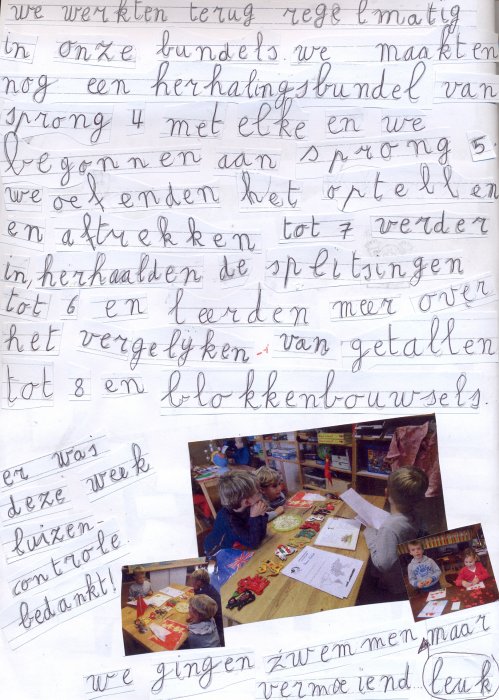 we werkten terug regelmatig
in onze bundels. we maakten
nog een herhalingsbundel van
sprong 4 met elke en we
begonnen aan sprong 5.
we oefenden het optellen
en aftrekken tot 7 verder
in, herhaalden de splitsingen
tot 6 en leerden meer over
het vergelyken van getallen
tot 8 en blokkenbouwsels.
er was
deze week
luizen-
controle.
bedankt!
we gingen zwemmen, maar
vermoeiend... leuk